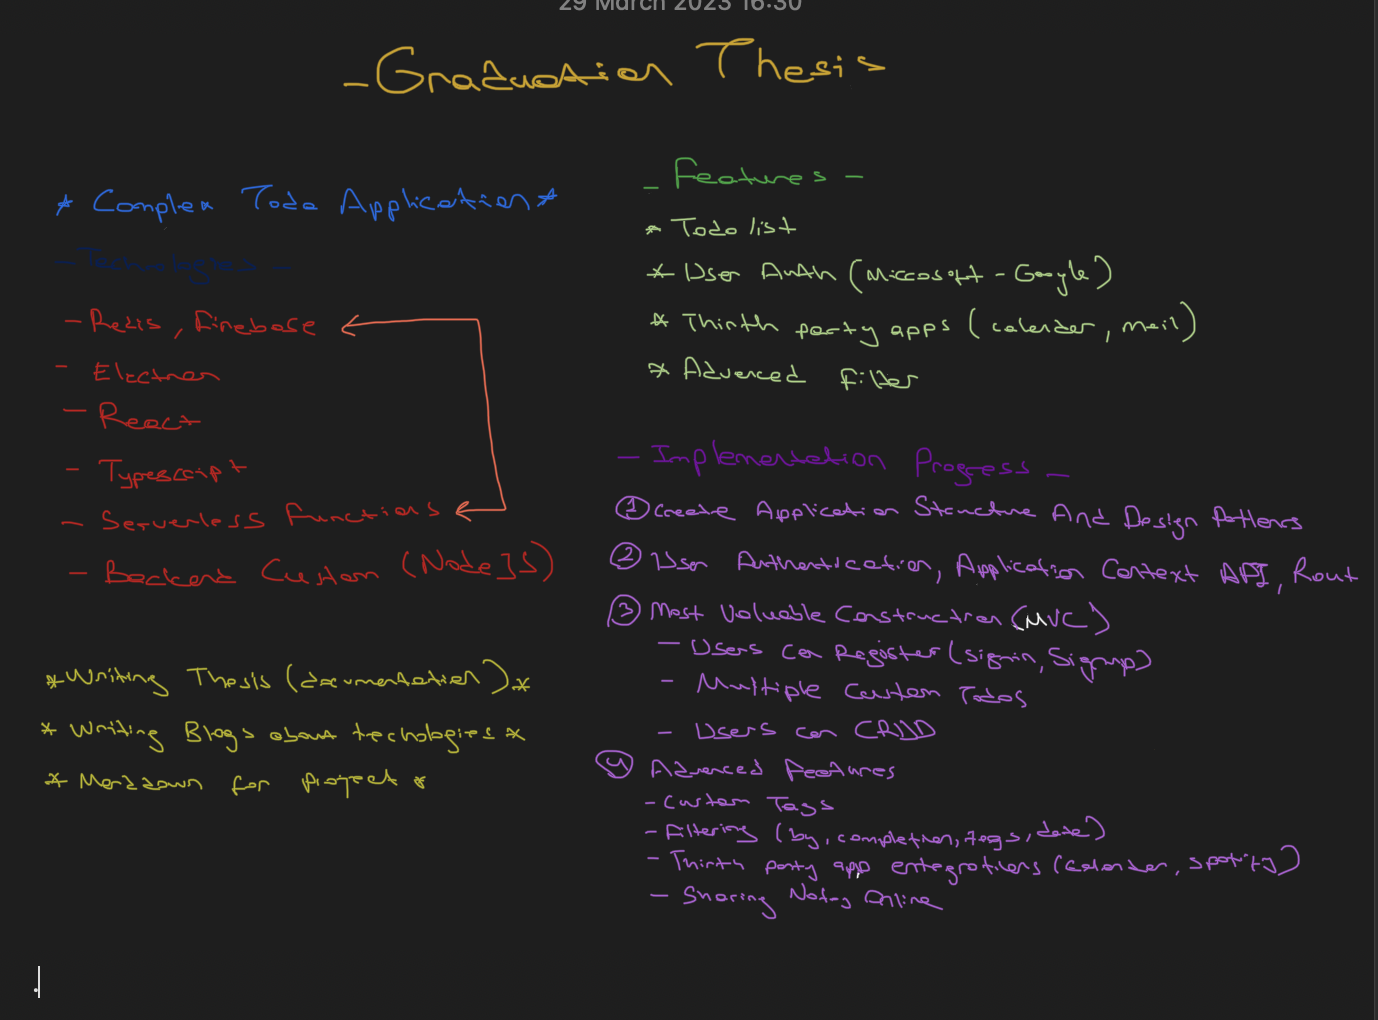 29 March 2023 16:30
- Graduation Thesis
* Complex Todo Application *
- Technologies -
- Redis, Firebase
- Electron
- React
- Typescript
- Serverless Functions
- Backend Custom (NodeJS)
* Writing Thesis (documentation) *
* Writing Blogs about technologies *
* Markdown for project *
- Features -
* Todo list
* User Auth (Microsoft - Google)
* Thirth party apps (calender, mail)
* Advanced filter
- Implementation Progress -
1 Create Application Structure And Design Patterns
2 User Authentication, Application Context API, Rout
3 Most Valuable Construction (MVC)
- Users can Register (signin, Signup)
- Multiple Custom Todos
- Users can CRUD
4 Advanced Features
- Custom Tags
- Filtering (by, completion, tags, date)
- Thirth party app entegrations (Calender, spotify)
- Sharing Notes Online
.